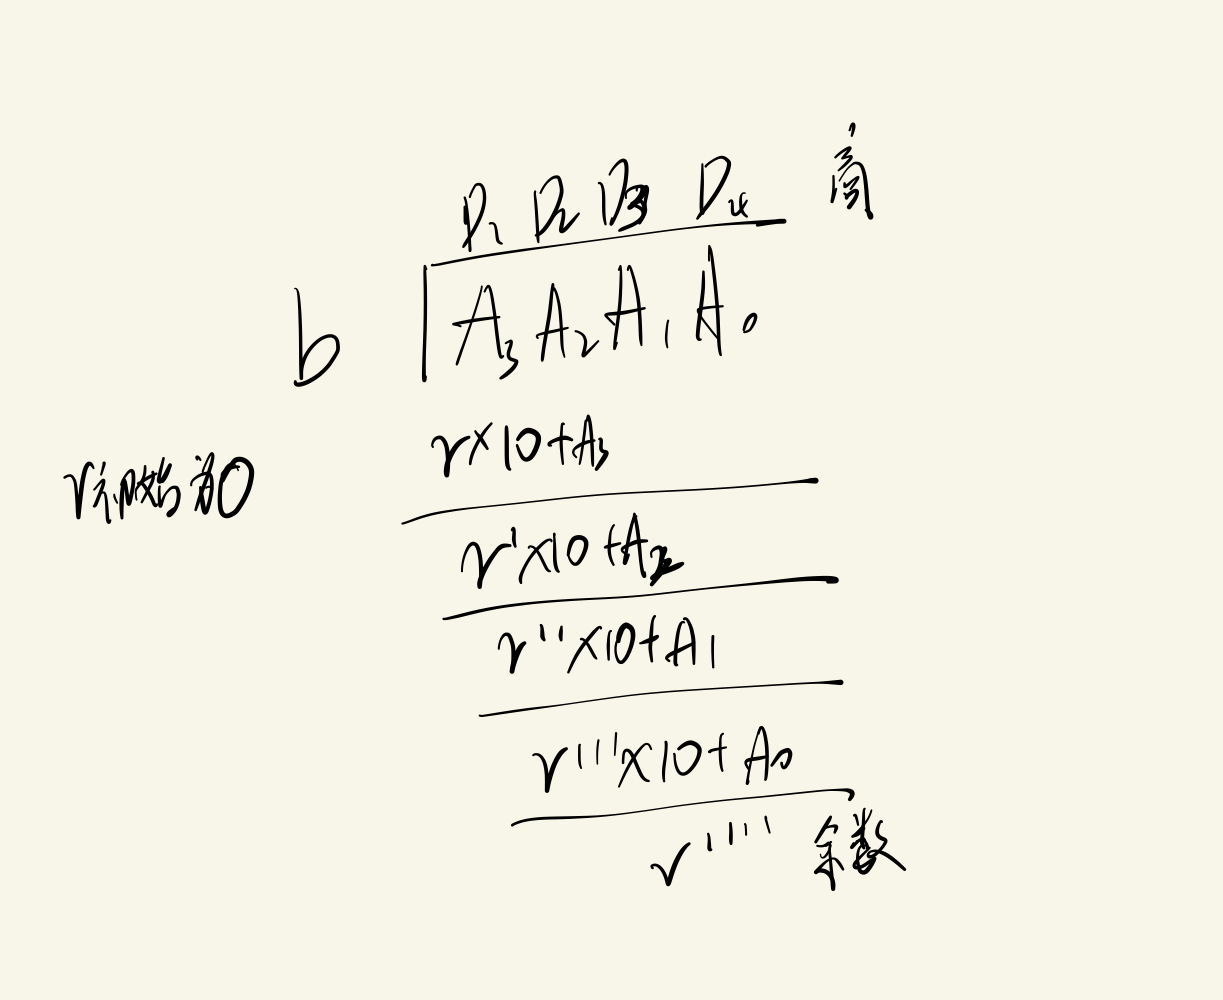 D₁ D₂ D₃ D₄ 商
b A₃ A₂ A₁ A₀
r×10+A₃
r初始为0
r'×10+A₂
r''×10+A₁
r'''×10+A₀
r'''' 余数